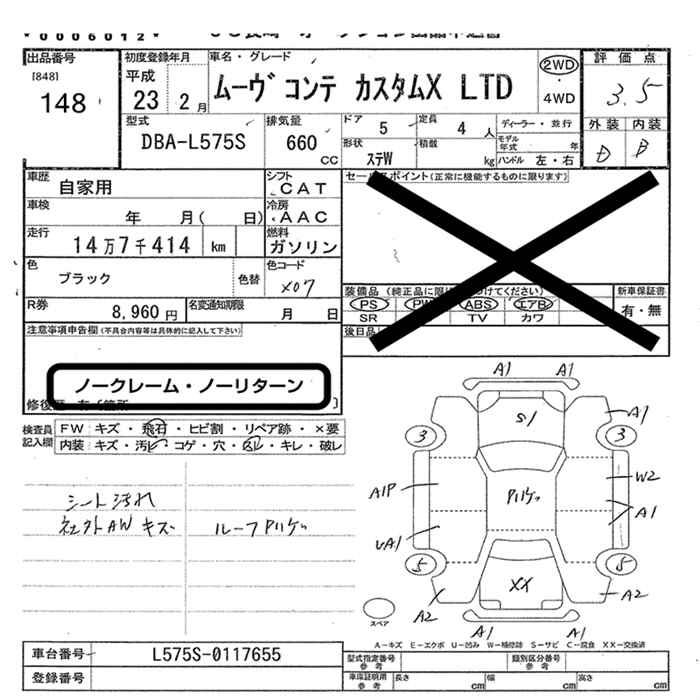 0006012
出品番号
[848]
148
初度登録年月
平成
23 2 月
車名・グレード
ムーヴ コンテ カスタムX LTD
2WD
・
4WD
評価点
3.5
外装 内装
D B
型式
DBA-L575S
排気量
660
CC
ドア 5
定員 4 人
形状 ステW
積載 kg
ディーラー・並行
モデル年式 年
ハンドル 左・右
車歴
自家用
シフト
CAT
車検
年 月( 日)
冷房
AAC
走行
14万7千414 km
燃料
ガソリン
色
ブラック
色替
色コード
X07
R券
8,960 円
名変通知期限
月 日
セールスポイント(正常に機能するものに限ります)
PS PW ABS エアB
SR TV カワ
新車保証書
有・無
後日品
注意事項申告欄(不具合内容等は具体的に記入して下さい)
ノークレーム・ノーリターン
検査員記入欄
FW キズ・飛石・ヒビ割・リペア跡・×要
内装 キズ・汚レ・コゲ・穴・スレ・キレ・破レ
シート汚れ
社外AW キズ
ルーフPハゲ
A1 A1
S1
A1
3 3
W2
A1P
Pハゲ
A1
UA1
5 5
XX
A2 A2
A1 A1
スペア
A-キズ E-エクボ U-凹み W-補修跡 S-サビ C-腐食 XX-交換済
車台番号
L575S-0117655
登録番号
型式指定番号
参考
類別区分番号
参考
車庫証明用
参考
長さ cm
幅 cm
高さ cm